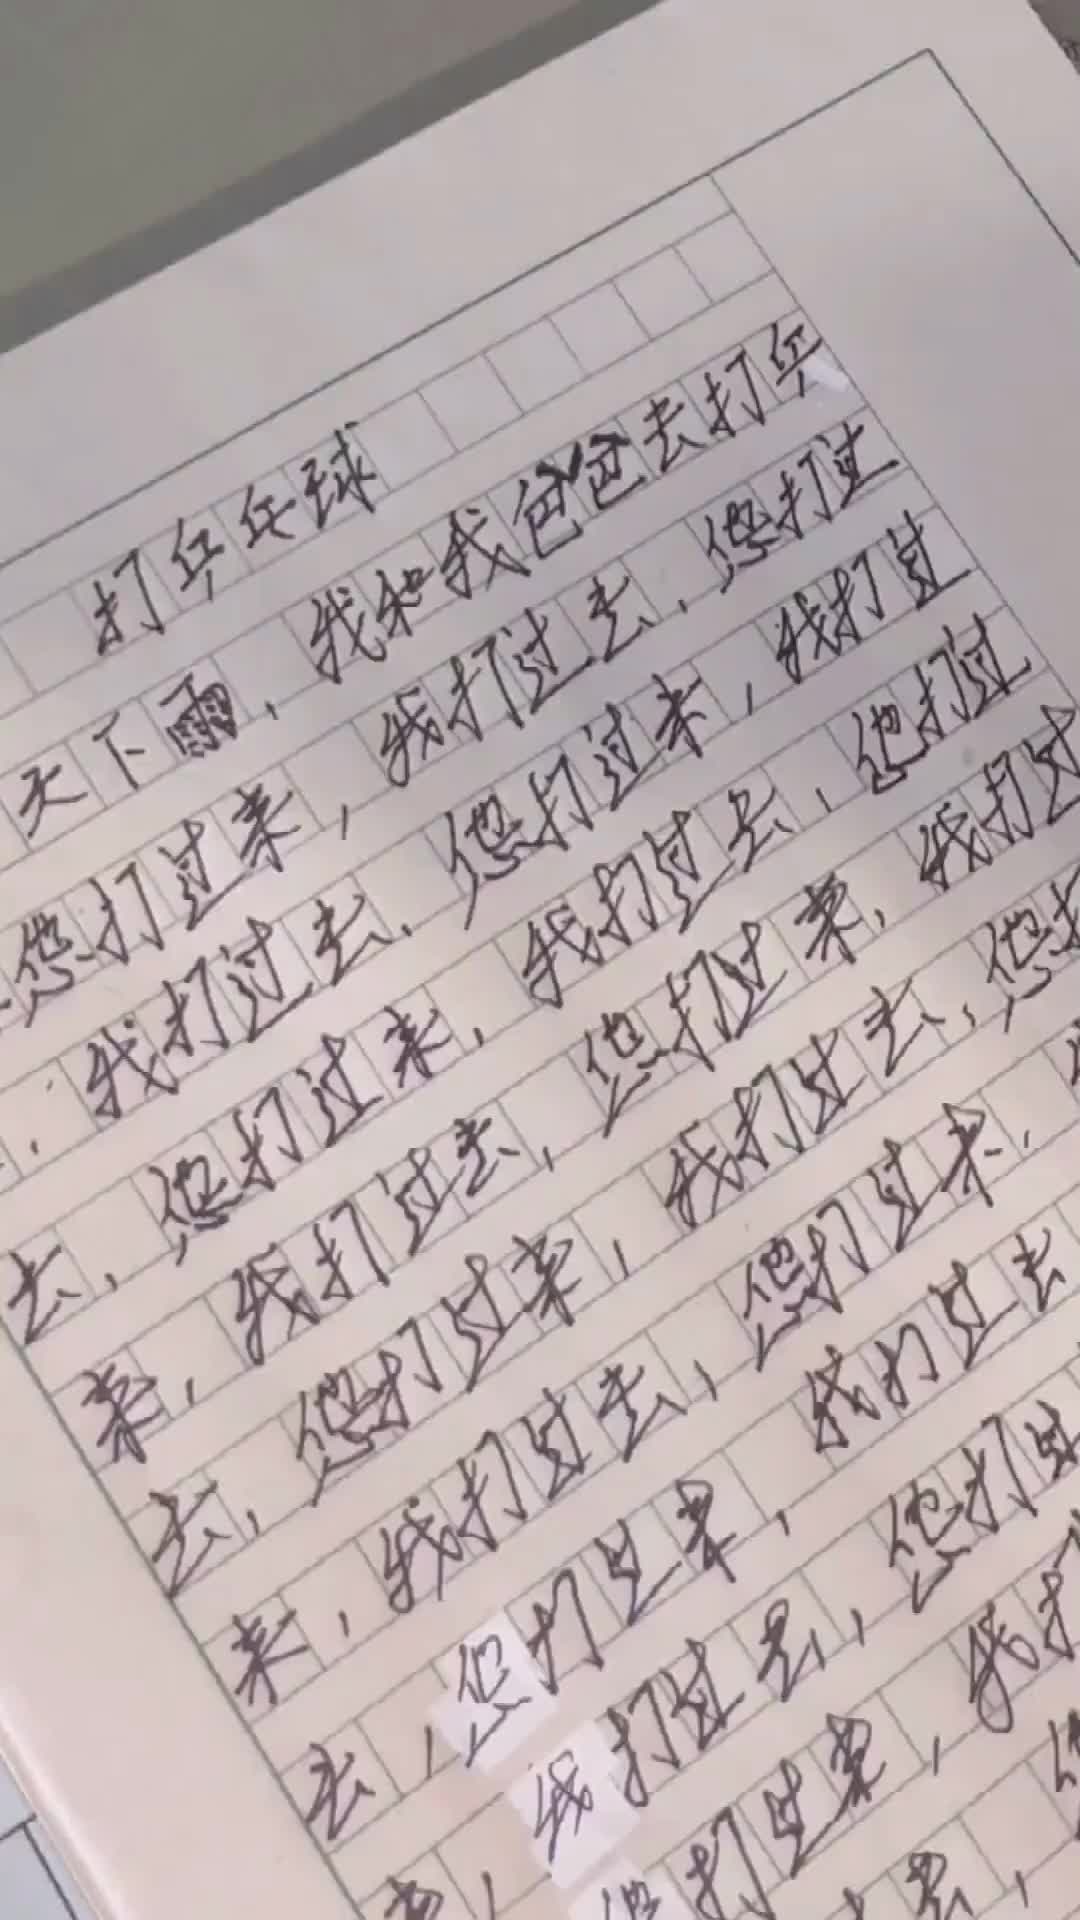 打乒乓球
天下雨，我和我爸爸去打乒
您打过来，我打过去，您打过
，我打过去，您打过来，我打过
去，您打过来，我打过去，您打过
来，我打过去，您打过来，我打过
去，您打过来，我打过去，您打
来，我打过去，您打过来，
去，您打过来，我打过去
来，我打过去，您打过
去，您打过来，我打